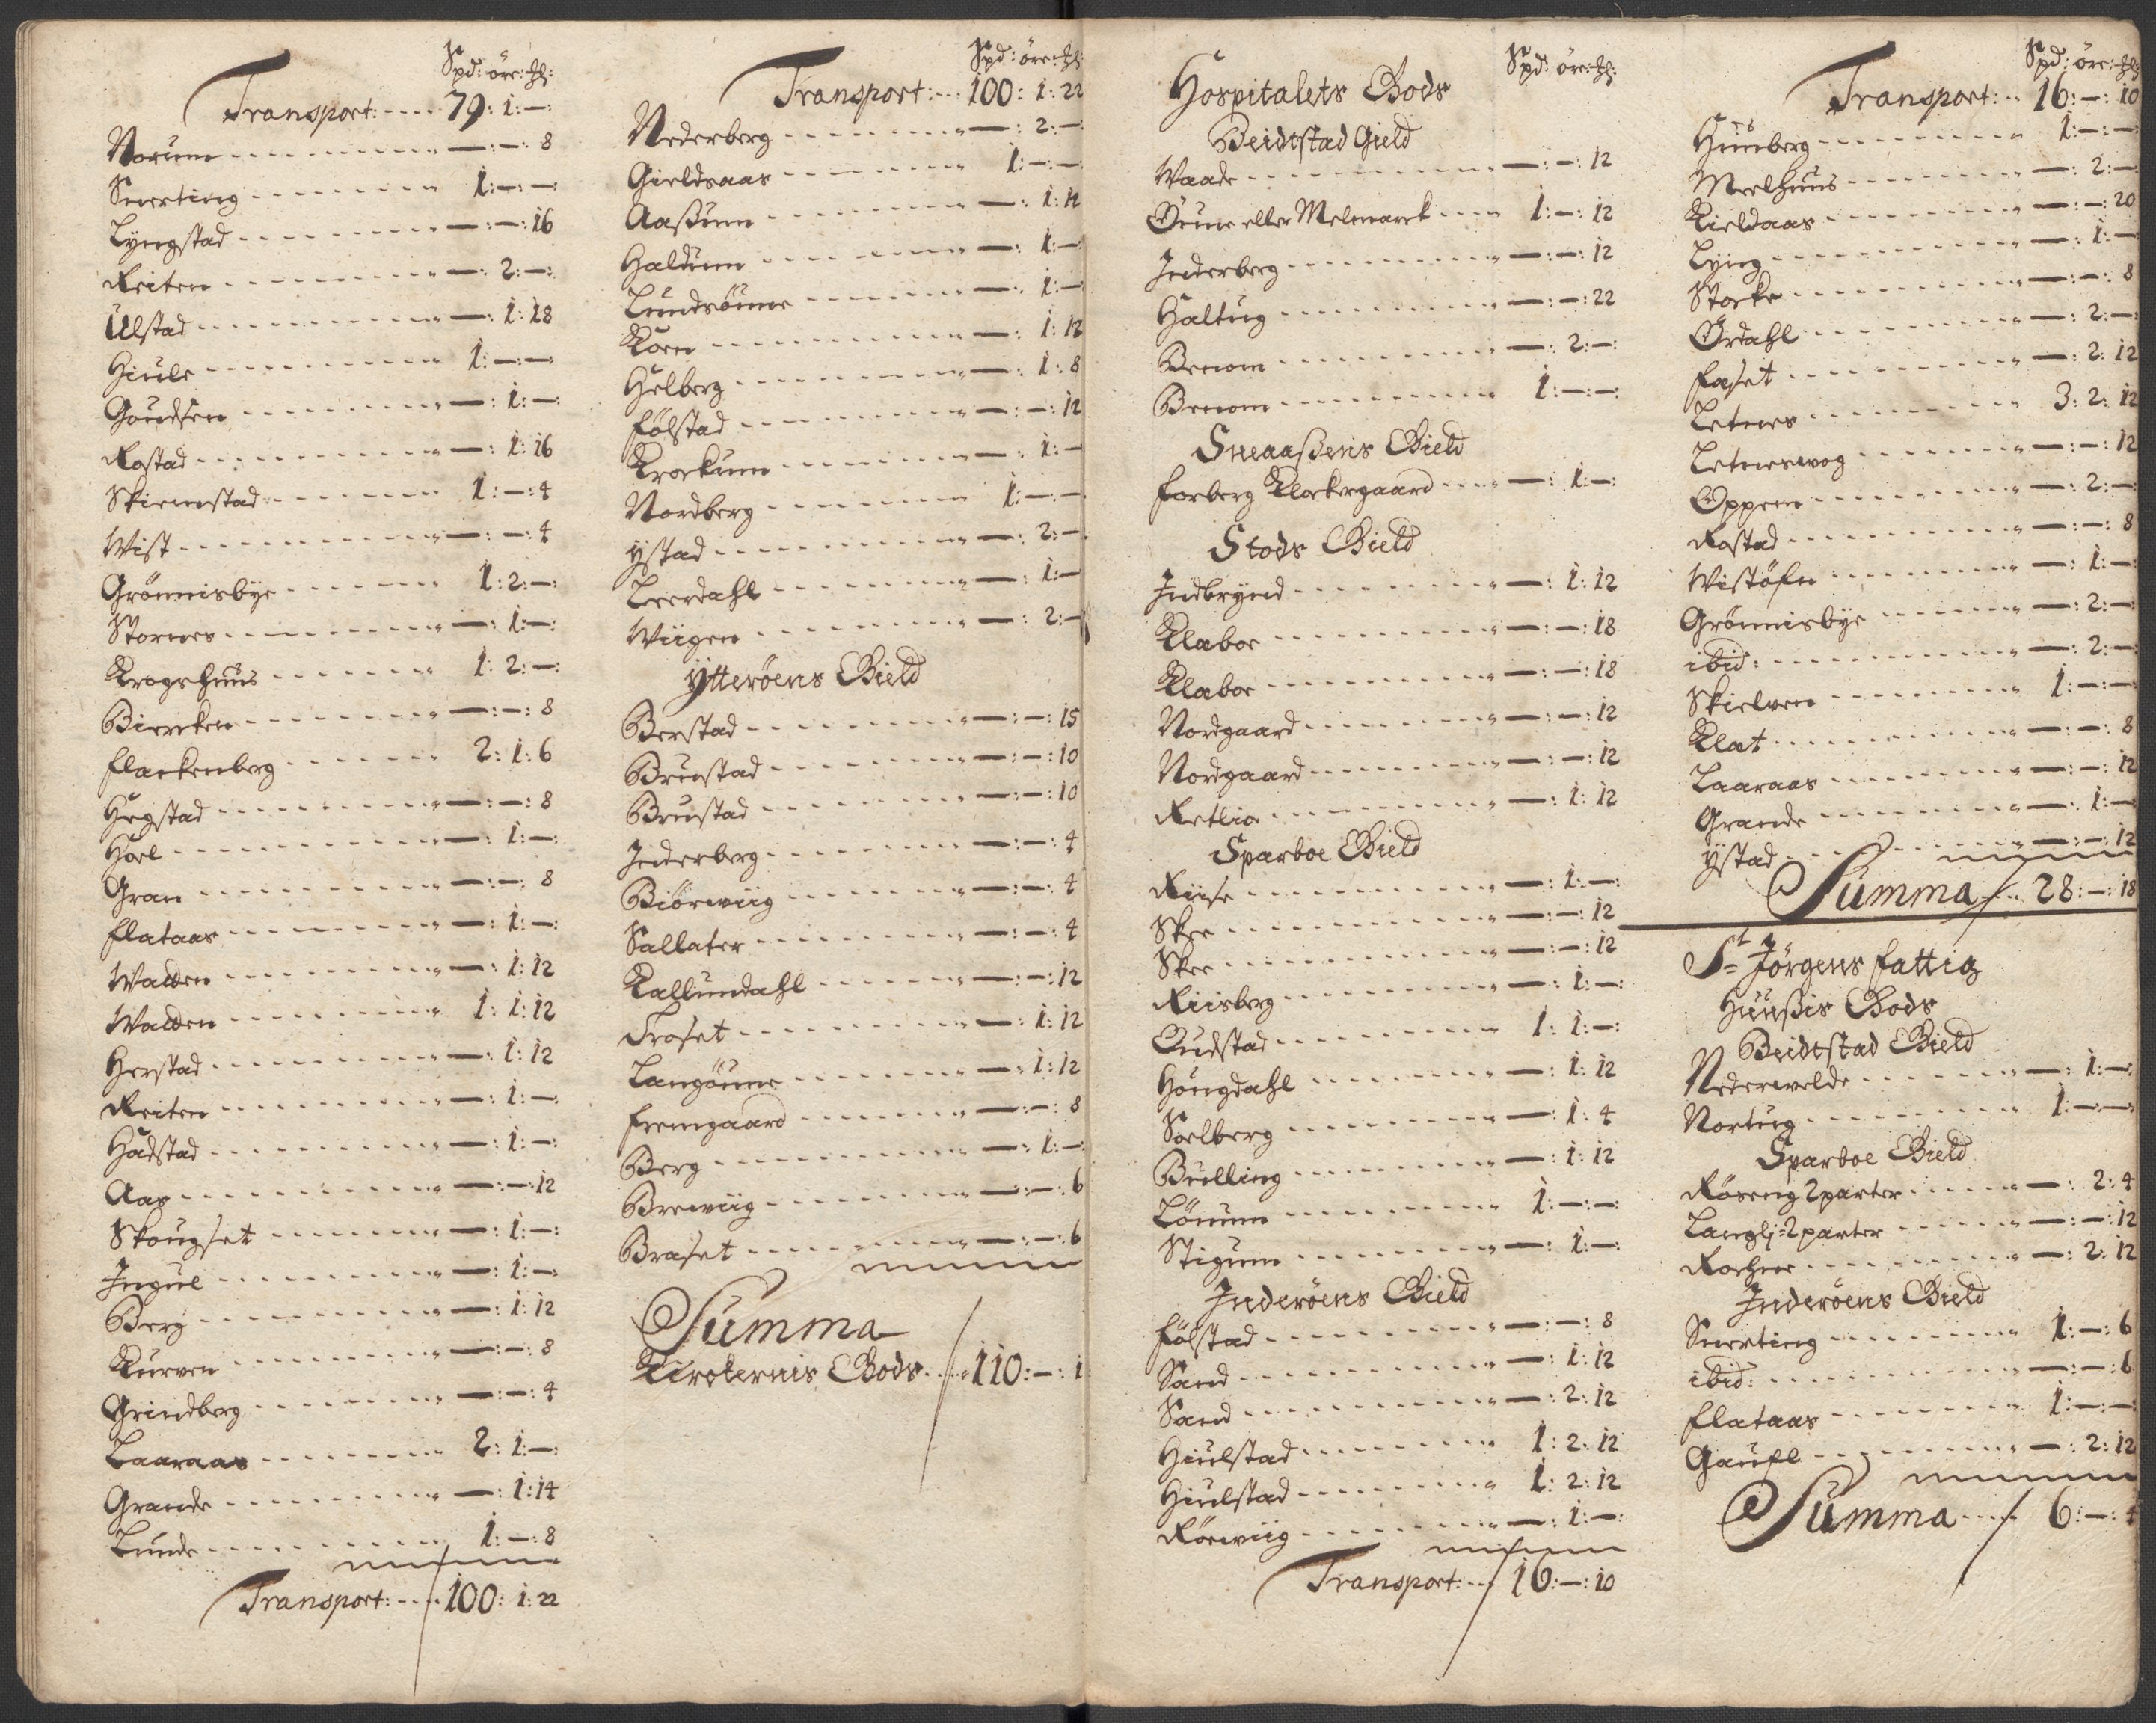 Spd: öre: ß:
Transport: 79: 1: —
Norum —: —: 8
Snerting 1: —: —
Lÿngstad —: —: 16
Reiten —: 2: —
Ulstad —: 1: 18
Hiule 1: —: —
Goudsen —: 1: —
Rostad —: 1: 16
Skiemstad 1: —: 4
Wist —: —: 4
Grönnisbÿe 1: 2: —
Stornes —: 1: —
Krogshuus 1: 2: —
Biercken —: —: 8
Flackenberg 2: 1: 6
Hegstad —: —: 8
Hoel —: 1: —
Gran —: —: 8
Flataas —: 1: —
Walden —: 1: 12
Walden 1: 1: 12
Herstad —: 1: 12
Reiten —: 1: —
Hadstad —: 1: —
Aas —: —: 12
Skougset —: 1: —
Ingul —: 1: —
Berg —: 1: 12
Kurven —: —: 8
Grindberg —: —: 4
Laaraas 2: 1: —
Grande —: 1: 14
Lunde 1: —: 8
Transport: 100: 1: 22
Spd: öre: ß:
Transport: 100: 1: 22
Nederberg —: 2: —
Gieldsaas 1: —: —
Aaßum —: 1: 12
Haldum —: 1: —
Lundsöune —: 1: —
Koen —: 1: 12
Helberg —: 1: 8
Fölstad —: —: 12
Krockum —: 1: —
Nordberg 1: —: —
ÿstad —: 2: —
Leerdahl —: 1: —
Wiigen —: 2: —
Ÿtterøens Gield
Berstad —: —: 15
Brustad —: —: 10
Brustad —: —: 10
Inderberg —: —: 4
Biörwiig —: —: 4
Sallater —: —: 4
Kallundahl —: —: 12
Troset —: 1: 12
Langöune —: 1: 12
Fremgaard —: —: 8
Berg —: 1: —
Brewiig —: —: 6
Braset —: —: 6
Summa
Kirckernis Gods 110: —: 1
Hospitalets Gods
Spd: öre: ß:
Beidtstad Gield
Waade —: —: 12
Öune eller Melmarck 1: —: 12
Inderberg —: —: 12
Haltug —: —: 22
Benom —: 2: —
Benom 1: —: —
Sneaaßens Gield
Forberg Klockergaard —: 1: —
Stods Gield
Indbrynd —: 1: 12
Klaboe —: —: 18
Klaboe —: —: 18
Nordgaard —: —: 12
Nordgaard —: —: 12
Retlia —: 1: 12
Sparboe Gield
Riise —: 1: —
Skee —: —: 12
Skee —: —: 12
Riisberg —: 1: —
Oudstad 1: 1: —
Hougdahl —: 1: 12
Soelberg —: 1: 4
Bulling —: 1: 12
Lönum 1: —: —
Stigum —: 1: —
Inderøens Gield
Fölstad —: —: 8
Sand —: 1: 12
Sand —: 2: 12
Hiulstad 1: 2: 12
Hiulstad 1: 2: 12
Rörwiig —: 1: —
Transport: 16: —: 10
Spd: öre: ß:
Transport: 16: —: 10
Hunberg 1: —: —
Meelhuus —: 2: —
Kieldaas —: —: 20
Lÿng —: 1: —
Stocke —: —: 8
Ördahl —: 2: —
Faset —: 2: 12
Letnes 3: 2: 12
Letneswog —: —: 12
Oppem —: 2: —
Rostad —: —: 8
Wistöfn —: 1: —
Grönnisbÿe —: 2: —
ibid: —: 2: —
Skielven 1: —: —
Klat —: —: 8
Laaraas —: —: 12
Grande —: 1: —
ÿstad —: —: 12
Summa 28: —: 18
St Jörgens Fattig
Huußis Gods
Beidtstad Gield
Nederwelde —: 1: —
Nortug 1: —: —
Sparboe Gield
Röseng 2 parter —: 2: 4
Langli 2 parter —: —: 12
Rochne —: 2: 12
Inderøens Gield
Snerting 1: —: 6
ibid: —: —: 6
Flataas 1: —: —
Gaufl —: 2: 12
Summa 6: —: 4